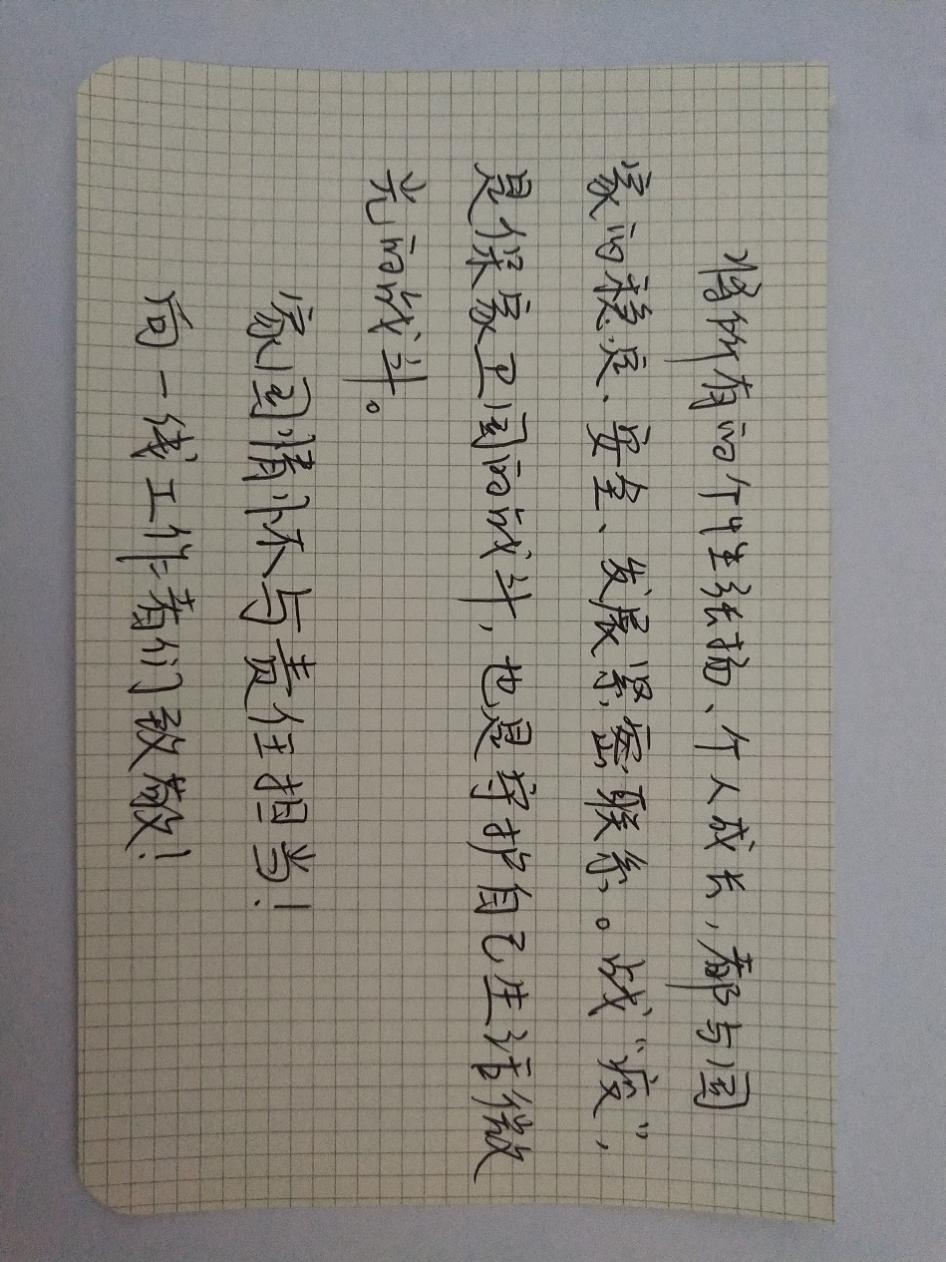 将所有的个性张扬、个人成长，都与国
家的稳定、安全、发展紧密联系。战“疫”，
是保家卫国的战斗，也是守护自己生活微
光的战斗。
家国情怀与责任担当！
向一线工作者们致敬！